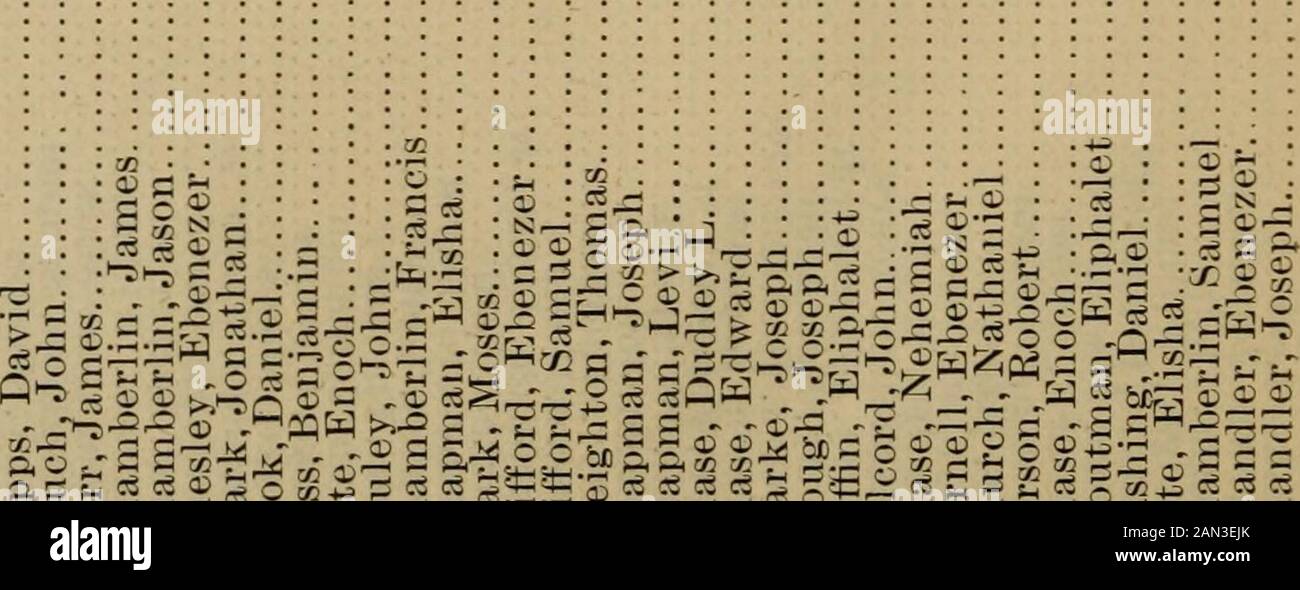 pps, David
uch, John
rr, James
amberlin, James
amberlin, Jason
esley, Ebenezer
ark, Jonathan
ok, Daniel
ss, Benjamin
te, Enoch
uley, John
amberlin, Francis
apman, Elisha
ark, Moses
ifford, Ebenezer
ifford, Samuel
eighton, Thomas
apman, Joseph
apman, Levi
ase, Dudley L.
ase, Edward
arke, Joseph
ough, Joseph
ffin, Eliphalet
lcord, John
ase, Nehemiah
rnell, Ebenezer
urch, Nathaniel
rson, Robert
ase, Enoch
outman, Eliphalet
shing, Daniel
te, Elisha
amberlin, Samuel
andler, Ebenezer
andler, Joseph
alamy
alamy
a
a
a
a
alamy stock photo
2AN3EJK
www.alamy.com